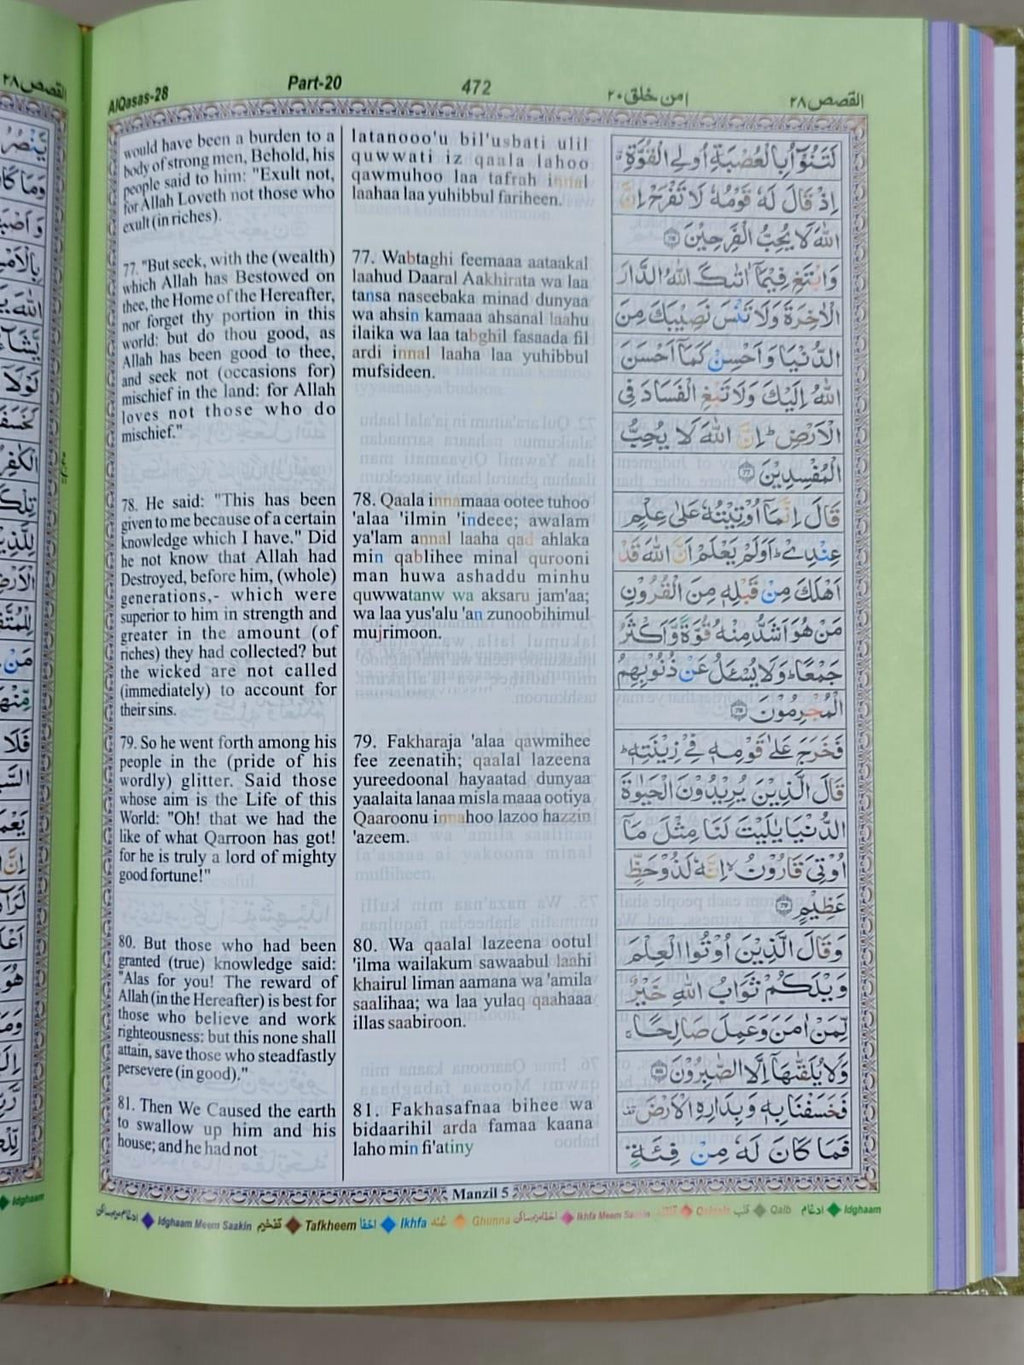 AlQasas-28
Part-20
472
امن خلق ٢٠
القصص ٢٨
would have been a burden to a
body of strong men, Behold, his
people said to him: "Exult not,
for Allah Loveth not those who
exult (in riches).
77. "But seek, with the (wealth)
which Allah has Bestowed on
thee, the Home of the Hereafter,
nor forget thy portion in this
world: but do thou good, as
Allah has been good to thee,
and seek not (occasions for)
mischief in the land: for Allah
loves not those who do
mischief."
78. He said: "This has been
given to me because of a certain
knowledge which I have." Did
he not know that Allah had
Destroyed, before him, (whole)
generations,- which were
superior to him in strength and
greater in the amount (of
riches) they had collected? but
the wicked are not called
(immediately) to account for
their sins.
79. So he went forth among his
people in the (pride of his
wordly) glitter. Said those
whose aim is the Life of this
World: "Oh! that we had the
like of what Qarroon has got!
for he is truly a lord of mighty
good fortune!"
80. But those who had been
granted (true) knowledge said:
"Alas for you! The reward of
Allah (in the Hereafter) is best for
those who believe and work
righteousness: but this none shall
attain, save those who steadfastly
persevere (in good)."
81. Then We Caused the earth
to swallow up him and his
house; and he had not
latanooo'u bil'usbati ulil
quwwati iz qaala lahoo
qawmuhoo laa tafrah innal
laahaa laa yuhibbul fariheen.
77. Wabtaghi feemaaa aataakal
laahud Daaral Aakhirata wa laa
tansa naseebaka minad dunyaa
wa ahsin kamaaa ahsanal laahu
ilaika wa laa tabghil fasaada fil
ardi innal laaha laa yuhibbul
mufsideen.
78. Qaala innamaaa ootee tuhoo
'alaa 'ilmin 'indeee; awalam
ya'lam annal laaha qad ahlaka
min qablihee minal qurooni
man huwa ashaddu minhu
quwwatanw wa aksaru jam'aa;
wa laa yus'alu 'an zunoobihimul
mujrimoon.
79. Fakharaja 'alaa qawmihee
fee zeenatih; qaalal lazeena
yureedoonal hayaatad dunyaa
yaalaita lanaa misla maaa ootiya
Qaaroonu innahoo lazoo hazzin
'azeem.
80. Wa qaalal lazeena ootul
'ilma wailakum sawaabul laahi
khairul liman aamana wa 'amila
saalihaa; wa laa yulaq qaahaaa
illas saabiroon.
81. Fakhasafnaa bihee wa
bidaarihil arda famaa kaana
laho min fi'atiny
لَتَنُوْٓاُ بِالْعُصْبَةِ اُولِی الْقُوَّةِ ۗ
اِذْ قَالَ لَهٗ قَوْمُهٗ لَا تَفْرَحْ اِنَّ
اللّٰهَ لَا یُحِبُّ الْفَرِحِیْنَ ۝٧٦
وَابْتَغِ فِیْمَآ اٰتٰىكَ اللّٰهُ الدَّارَ
الْاٰخِرَةَ وَلَا تَنْسَ نَصِیْبَكَ مِنَ
الدُّنْیَا وَاَحْسِنْ كَمَآ اَحْسَنَ
اللّٰهُ اِلَیْكَ وَلَا تَبْغِ الْفَسَادَ فِی
الْاَرْضِ ؕ اِنَّ اللّٰهَ لَا یُحِبُّ
الْمُفْسِدِیْنَ ۝٧٧
قَالَ اِنَّمَآ اُوْتِیْتُهٗ عَلٰی عِلْمٍ
عِنْدِیْ ؕ اَوَلَمْ یَعْلَمْ اَنَّ اللّٰهَ قَدْ
اَهْلَكَ مِنْ قَبْلِهٖ مِنَ الْقُرُوْنِ
مَنْ هُوَ اَشَدُّ مِنْهُ قُوَّةً وَّاَكْثَرُ
جَمْعًا ؕ وَلَا یُسْـَٔلُ عَنْ ذُنُوْبِهِمُ
الْمُجْرِمُوْنَ ۝٧٨
فَخَرَجَ عَلٰی قَوْمِهٖ فِیْ زِیْنَتِهٖ ؕ
قَالَ الَّذِیْنَ یُرِیْدُوْنَ الْحَیٰوةَ
الدُّنْیَا یٰلَیْتَ لَنَا مِثْلَ مَآ
اُوْتِیَ قَارُوْنُ ۙ اِنَّهٗ لَذُوْ حَظٍّ
عَظِیْمٍ ۝٧٩
وَقَالَ الَّذِیْنَ اُوْتُوا الْعِلْمَ
وَیْلَكُمْ ثَوَابُ اللّٰهِ خَیْرٌ
لِّمَنْ اٰمَنَ وَعَمِلَ صَالِحًا ۚ
وَلَا یُلَقّٰىهَآ اِلَّا الصّٰبِرُوْنَ ۝٨٠
فَخَسَفْنَا بِهٖ وَبِدَارِهِ الْاَرْضَ ۫
فَمَا كَانَ لَهٗ مِنْ فِئَةٍ
Manzil 5
Idghaam Meem Saakin تفخیم Tafkheem اخفا Ikhfa غنه Ghunna Ikhfa Meem Saakin Qalqala قلب Qalb ادغام Idghaam